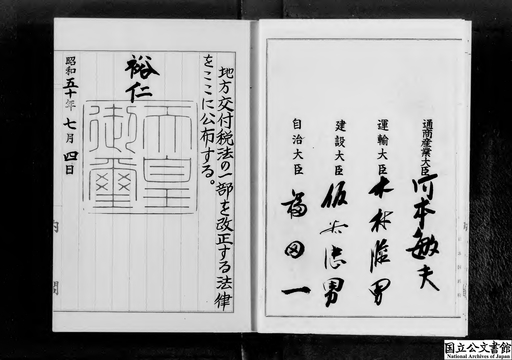 通商産業大臣 河本敏夫
運輸大臣 木村睦男
建設大臣 仮谷忠男
自治大臣 福田一
地方交付税法の一部を改正する法律
をここに公布する。
裕仁
天皇
御璽
昭和五十年七月四日
内閣
国立公文書館
National Archives of Japan